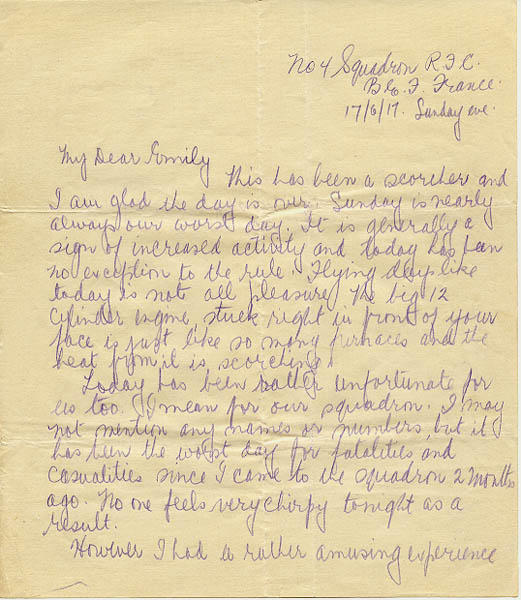 No 4 Squadron R.F.C.
B.E.F. France.
17/6/17. Sunday eve.
My Dear Family
This has been a scorcher and
I am glad the day is over. Sunday is nearly
always our worst day. It is generally a
sign of increased activity and today has been
no exception to the rule. Flying days like
today is not all pleasure. The big 12
cylinder engine stuck right in front of your
face is just like so many furnaces and the
heat from it is scorching.
Today has been rather unfortunate for
us too. I mean for our squadron. I may
not mention any names or numbers, but it
has been the worst day for fatalities and
casualities since I came to the squadron 2 months
ago. No one feels very chirpy tonight as a
result.
However I had a rather amusing experience